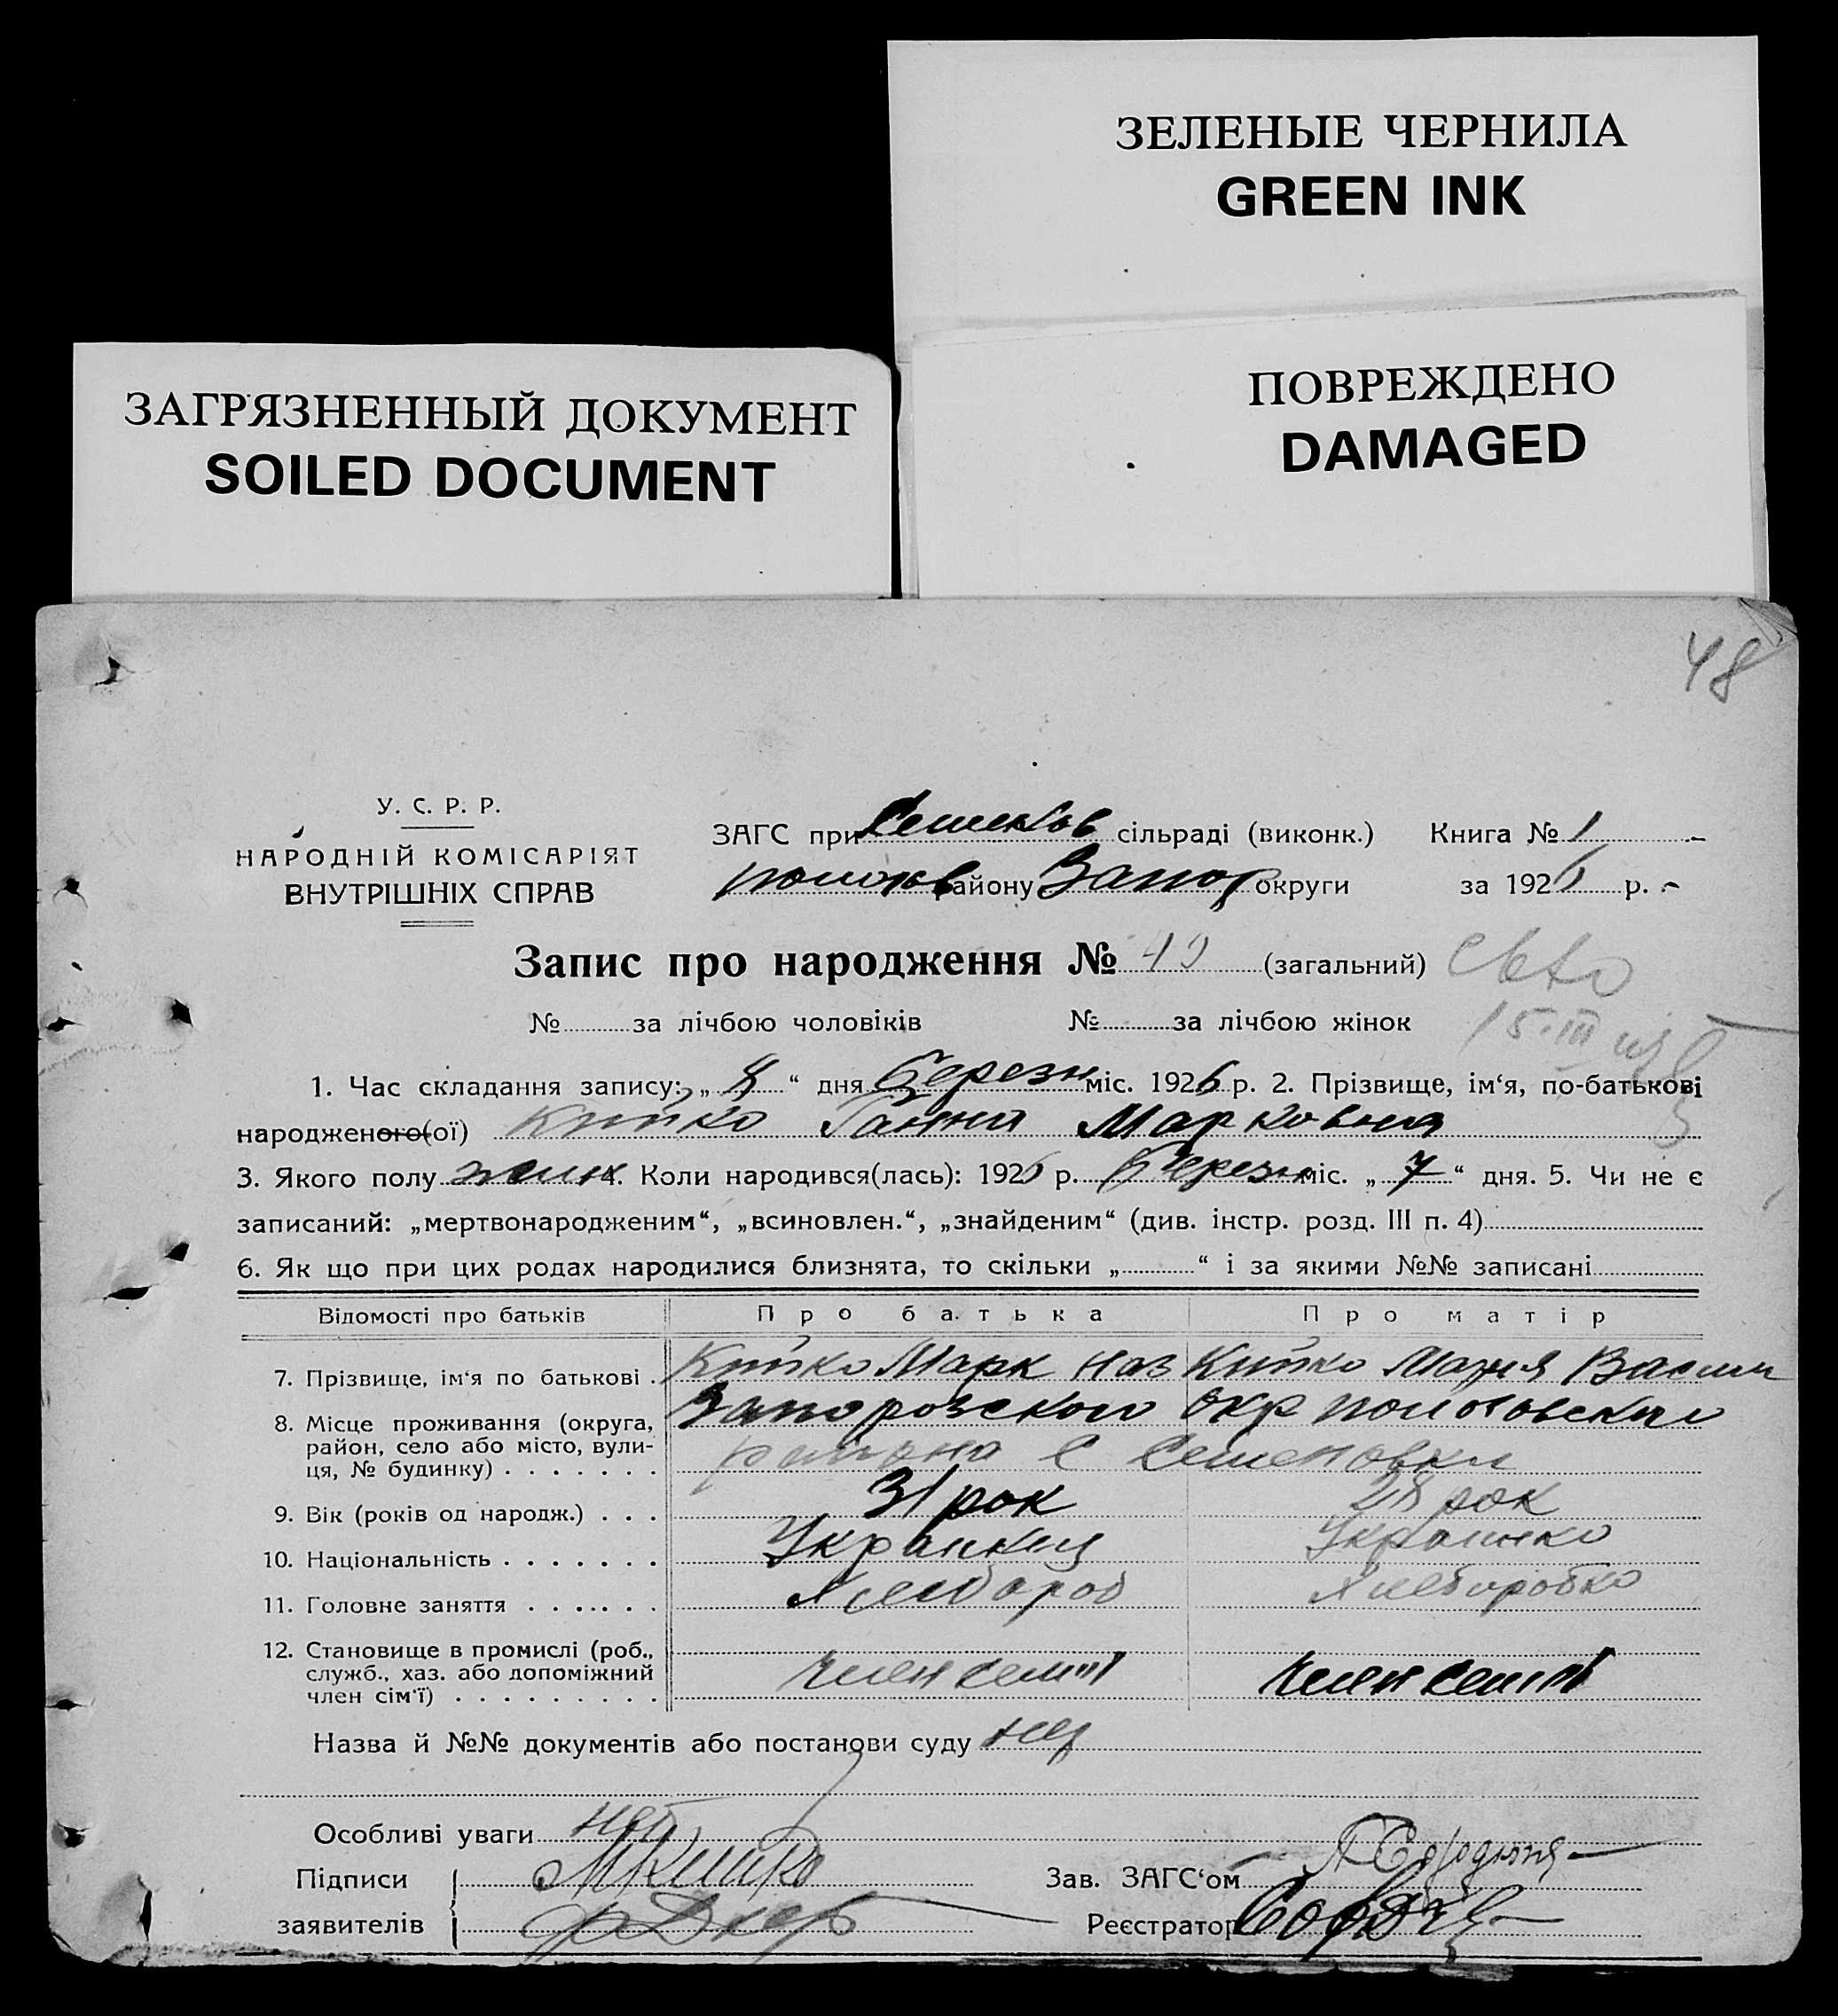 ЗЕЛЕНЫЕ ЧЕРНИЛА
GREEN INK
ПОВРЕЖДЕНО
DAMAGED
ЗАГРЯЗНЕННЫЙ ДОКУМЕНТ
SOILED DOCUMENT
48
У. С. Р. Р.
НАРОДНІЙ КОМІСАРІЯТ
ВНУТРІШНІХ СПРАВ
ЗАГС при Семенков сільраді (виконк.) Книга № 1
району Запор округи за 1926 р.
Запис про народження № 49 (загальний)
№ за лічбою чоловіків № за лічбою жінок
15.III
1. Час складання запису: „ 8 “ дня березн міс. 1926 р. 2. Прізвище, ім‘я, по-батькові
народженого(ої) Китко Ганна Марковна
3. Якого полу жин 4. Коли народився(лась): 1926 р. березн міс. „ 7 “ дня. 5. Чи не є
записаний: „мертвонародженим“, „всиновлен.“, „знайденим“ (див. інстр. розд. III п. 4)
6. Як що при цих родах народилися близнята, то скільки „ “ і за якими №№ записані
Відомості про батьків Про батька Про матір
7. Прізвище, ім‘я по батькові . Китко Марк Наз Китко Мария Васил
8. Місце проживання (округа, Запоровского Окр Пологовского
район, село або місто, вули-
ця, № будинку) . . . . . . . района с Семеновки
9. Вік (років од народж.) . . . 31 рок 28 рок
10. Національність . . . . . . . Украинец Украинко
11. Головне заняття . . . . . . . Хлебороб Хлеборобко
12. Становище в промислі (роб.,
служб., хаз. або допоміжний член семті член семті
член сім‘ї) . . . . . . . . .
Назва й №№ документів або постанови суду нет
Особливі уваги нет
Підписи МКитко Зав. ЗАГС‘ом
заявителів Реєстратор